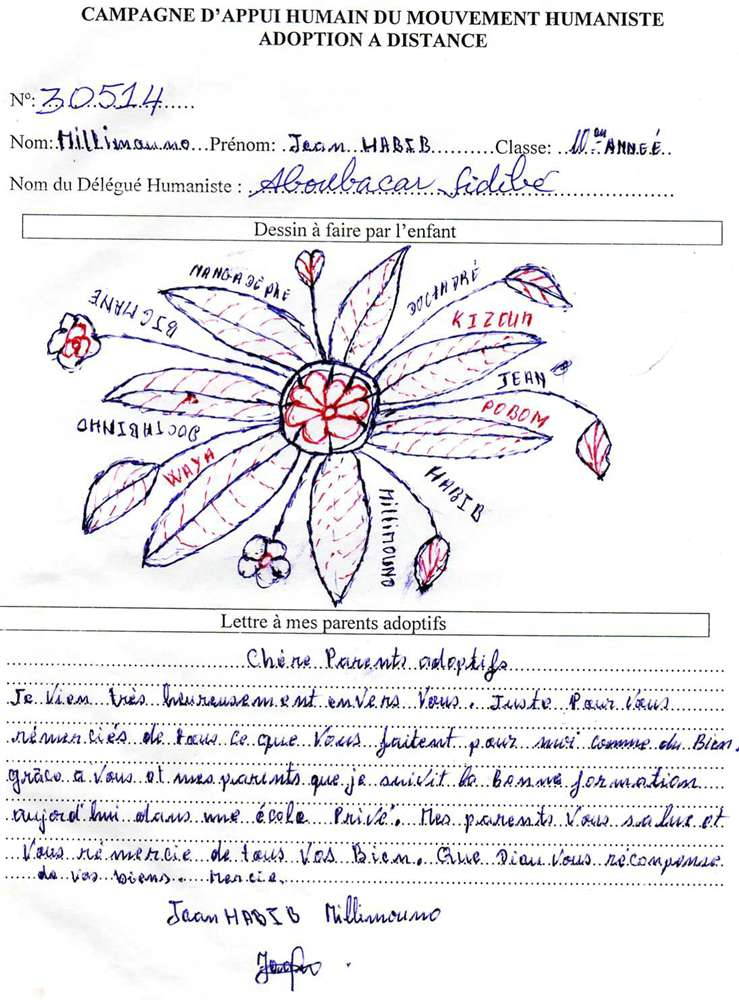 CAMPAGNE D'APPUI HUMAIN DU MOUVEMENT HUMANISTE
ADOPTION A DISTANCE
N°: 30514
Nom: Millimouno Prénom: Jean HABIB Classe: 10ème ANNÉE
Nom du Délégué Humaniste : Aboubacar Sidibé
Dessin à faire par l'enfant
MANGADÉPRÉ
DOCTADRÉ
BIGMANE
KIZOUA
JEAN
DOCTABINHO
POBOM
WAYA
HABIB
Millimouno
Lettre à mes parents adoptifs
Chère Parents adoptifs
Je vien très heureusement envers Vous. Juste Pour Vous
rémerciés de tous ce que Vous faitent pour moi comme du Bien.
grâce a Vous et mes parents que je suivit la Bonne formation
aujord'hui dans une école Privé. Mes parents Vous salue et
Vous rémercie de tous Vos Bien. Que Dieu Vous récompense
de vos biens. Mercie.
Jean HABIB Millimouno